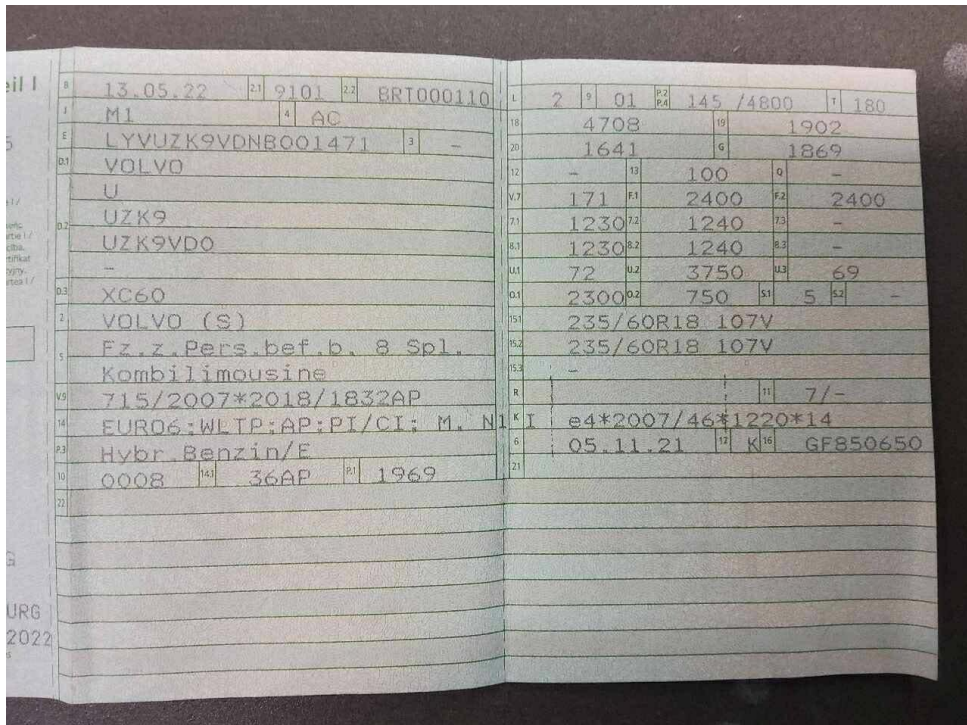 eil I
B 13.05.22 2.1 9101 2.2 BRT000110
J M1 4 AC
E LYVUZK9VDNB001471 3 –
D.1 VOLVO
U
D.2 UZK9
UZK9VD0
–
D.3 XC60
2 VOLVO (S)
5 Fz.z.Pers.bef.b. 8 Spl.
Kombilimousine
V.9 715/2007*2018/1832AP
14 EURO6;WLTP;AP;PI/CI; M, N1 I
P.3 Hybr.Benzin/E
10 0008 14.1 36AP P.1 1969
22
L 2 9 01 P.2 P.4 145 /4800 T 180
18 4708 19 1902
20 1641 G 1869
12 – 13 100 Q –
V.7 171 F.1 2400 F.2 2400
7.1 1230 7.2 1240 7.3 –
8.1 1230 8.2 1240 8.3 –
U.1 72 U.2 3750 U.3 69
O.1 2300 O.2 750 S.1 5 S.2 –
15.1 235/60R18 107V
15.2 235/60R18 107V
15.3 –
R 11 7/–
K e4*2007/46*1220*14
6 05.11.21 17 K 16 GF850650
21
URG
2022